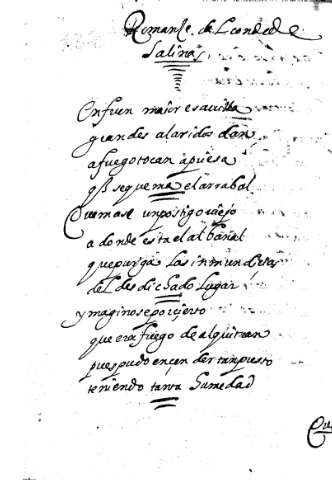 Romanse del Conde de
Salinas
En fuen maior esa villa
grandes alaridos dan
a fuego tocan apriesa
q̃ se quema el arrabal
Quemase un postigo viejo
a donde esta el albañal
que purga las inmundicias
del desdichado lugar
ymaginose por cierto
que era fuego de alquitran
pues pudo encender tan presto
teniendo tanta humedad